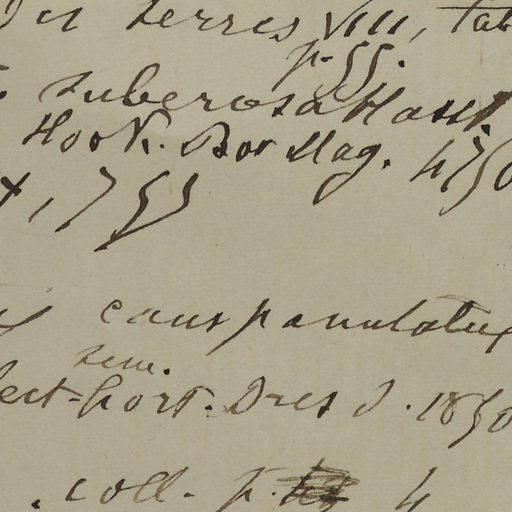 des serres VIII, tab
p. 55.
tuberosa Hassk
Hook. Bot Mag. 4750
t, 755
campanulatus
sem.
lect. hort. Dresd. 1850
. coll. p. 4